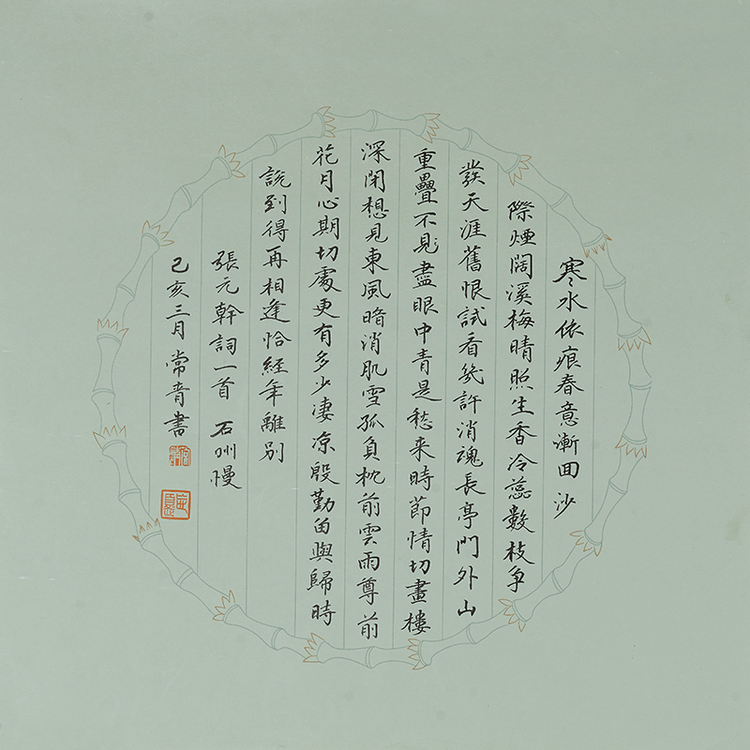 寒水依痕春意漸回沙
際煙闊溪梅晴照生香冷蕊數枝爭
發天涯舊恨試看幾許消魂長亭門外山
重疊不見盡眼中青是愁来時節情切畫樓
深閉想見東風暗消肌雪孤負枕前雲雨尊前
花月心期切處更有多少凄凉殷勤留與歸時
說到得再相逢恰經年離別
張元幹詞一首 石州慢
己亥三月常音書